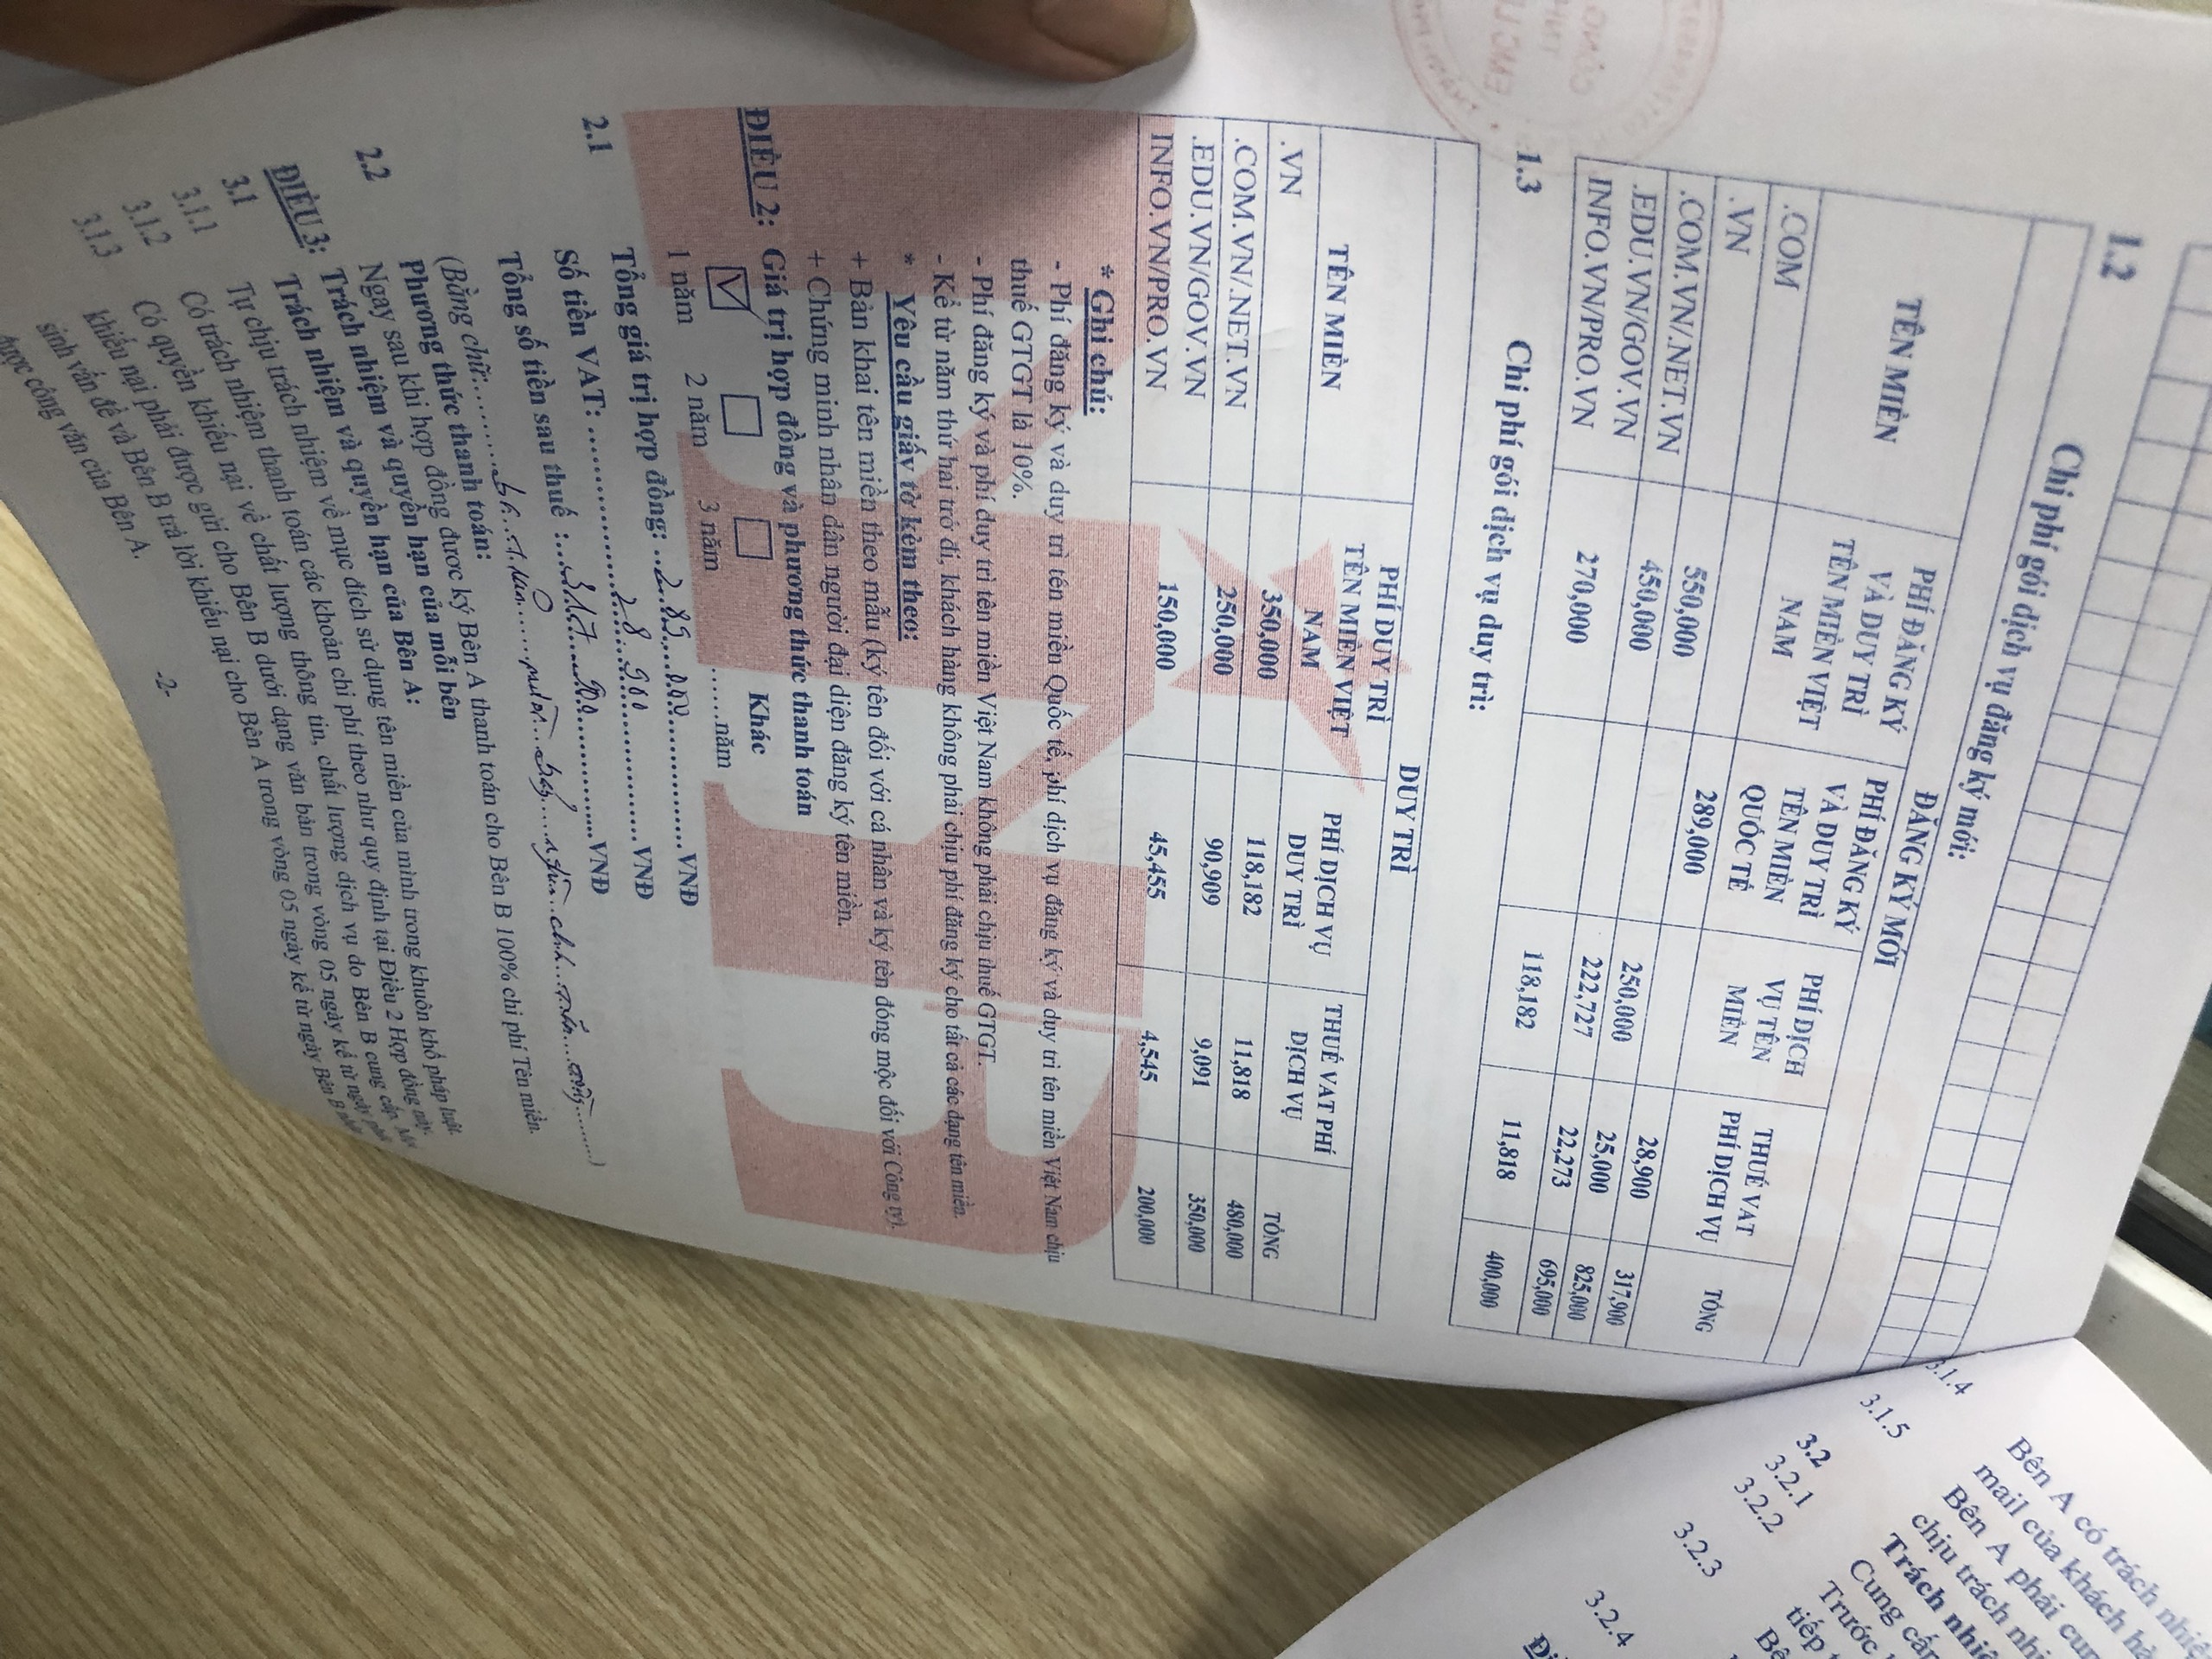 1.2 Chi phí gói dịch vụ đăng ký mới:
ĐĂNG KÝ MỚI
TÊN MIỀN
PHÍ ĐĂNG KÝ VÀ DUY TRÌ TÊN MIỀN VIỆT NAM
PHÍ ĐĂNG KÝ VÀ DUY TRÌ TÊN MIỀN QUỐC TẾ
PHÍ DỊCH VỤ TÊN MIỀN
THUẾ VAT PHÍ DỊCH VỤ
TỔNG
.COM 289,000 28,900 317,900
.VN 550,000 250,000 25,000 825,000
.COM.VN/.NET.VN 450,000 222,727 22,273 695,000
.EDU.VN/GOV.VN 270,000 118,182 11,818 400,000
INFO.VN/PRO.VN
1.3 Chi phí gói dịch vụ duy trì:
DUY TRÌ
TÊN MIỀN
PHÍ DUY TRÌ TÊN MIỀN VIỆT NAM
PHÍ DỊCH VỤ DUY TRÌ
THUẾ VAT PHÍ DỊCH VỤ
TỔNG
.VN 350,000 118,182 11,818 480,000
.COM.VN/.NET.VN 250,000 90,909 9,091 350,000
.EDU.VN/GOV.VN 150,000 45,455 4,545 200,000
INFO.VN/PRO.VN
* Ghi chú:
- Phí đăng ký và duy trì tên miền Quốc tế, phí dịch vụ đăng ký và duy trì tên miền Việt Nam chịu
thuế GTGT là 10%.
- Phí đăng ký và phí duy trì tên miền Việt Nam không phải chịu thuế GTGT.
- Kể từ năm thứ hai trở đi, khách hàng không phải chịu phí đăng ký cho tất cả các dạng tên miền.
* Yêu cầu giấy tờ kèm theo:
+ Bản khai tên miền theo mẫu (ký tên đối với cá nhân và ký tên đóng mộc đối với Công ty).
+ Chứng minh nhân dân người đại diện đăng ký tên miền.
ĐIỀU 2: Giá trị hợp đồng và phương thức thanh toán
Khác
1 năm 2 năm 3 năm .......năm
2.1 Tổng giá trị hợp đồng: ...289.000...VNĐ
Số tiền VAT: ...28.900...VNĐ
Tổng số tiền sau thuế :...317.900...VNĐ
(Bằng chữ:...Ba trăm mười bảy nghìn chín trăm đồng...)
2.2 Phương thức thanh toán:
Ngay sau khi hợp đồng được ký Bên A thanh toán cho Bên B 100% chi phí Tên miền.
ĐIỀU 3: Trách nhiệm và quyền hạn của mỗi bên
3.1 Trách nhiệm và quyền hạn của Bên A:
3.1.1 Tự chịu trách nhiệm về mục đích sử dụng tên miền của mình trong khuôn khổ pháp luật.
3.1.2 Có trách nhiệm thanh toán các khoản chi phí theo như quy định tại Điều 2 Hợp đồng này.
3.1.3 Có quyền khiếu nại về chất lượng thông tin, chất lượng dịch vụ do Bên B cung cấp. Mọi
khiếu nại phải được gửi cho Bên B dưới dạng văn bản trong vòng 05 ngày kể từ ngày phát
sinh vấn đề và Bên B trả lời khiếu nại cho Bên A trong vòng 05 ngày kể từ ngày Bên B nhận
được công văn của Bên A.
-2-
3.1.4 Bên A có trách nhiệ
mail của khách hà
3.1.5 Bên A phải cun
chịu trách nhi
3.2 Trách nhiệ
3.2.1 Cung cấp
3.2.2 Trước
tiếp
3.2.3 Bê
3.2.4